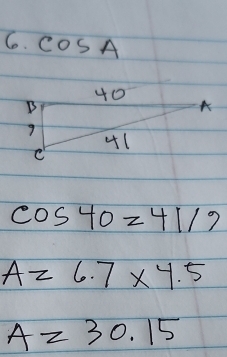 6. COS A
40
B A
9
41
C
COS 40 = 41/9
A = 6.7 × 4.5
A = 30.15